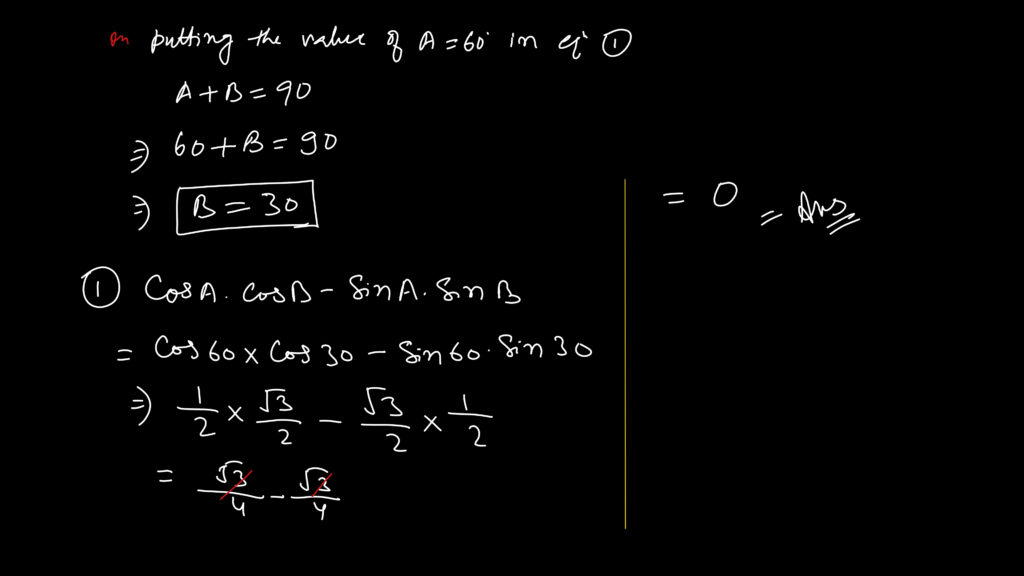 on putting the value of A = 60° in eqⁿ ①
A + B = 90
⇒ 60 + B = 90
⇒ B = 30
① Cos A . Cos B - Sin A . Sin B
= Cos 60 × Cos 30 - Sin 60 . Sin 30
⇒ 1/2 × √3/2 - √3/2 × 1/2
= √3/4 - √3/4
= 0 = Ans